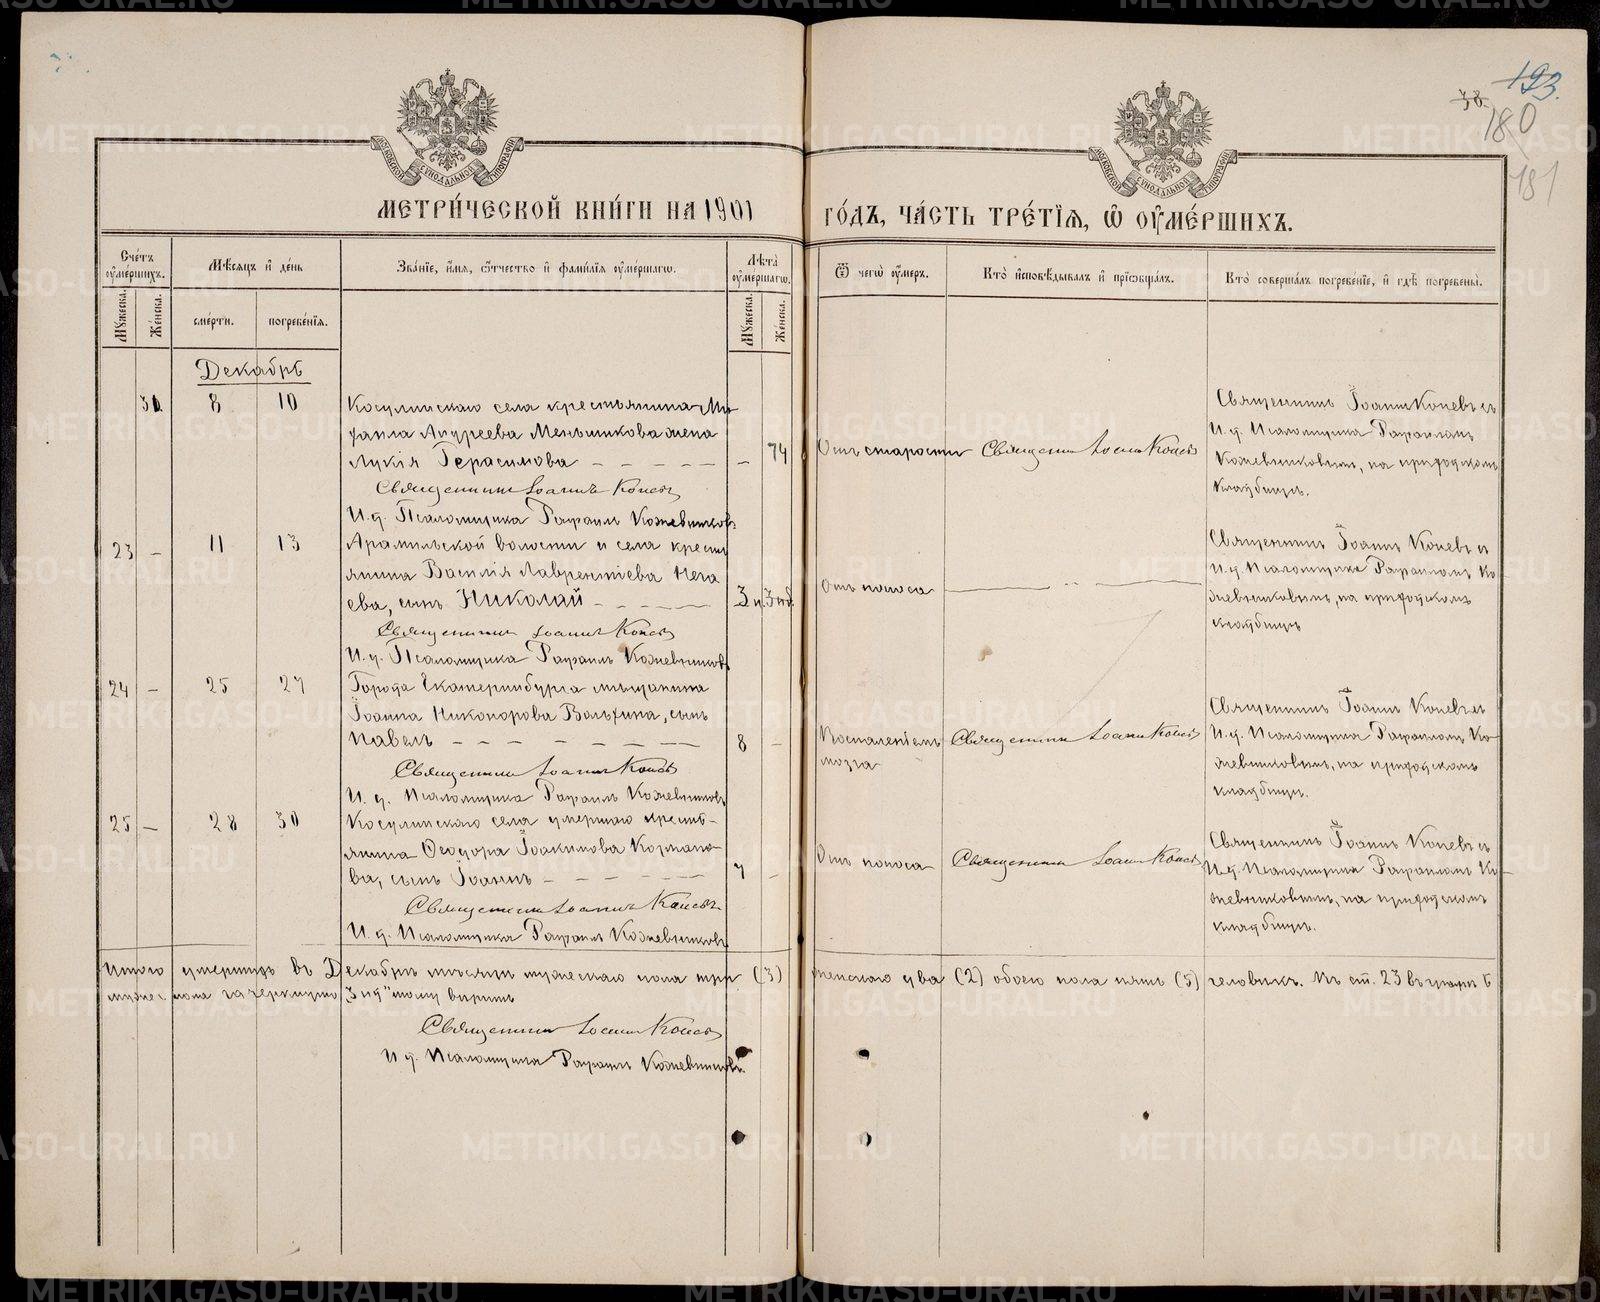 193.
38.
180
181
МОСКОВСКОЙ СѴНОДАЛЬНОЙ ТИПОГРАФІИ
МОСКОВСКОЙ СѴНОДАЛЬНОЙ ТИПОГРАФІИ
МЕТРИ́ЧЕСКОЙ КНИ́ГИ НА 1901 ГО́ДЪ, ЧА́СТЬ ТРЕ́ТІЯ, Ѡ ОУ҆МЕ́РШИХЪ.
Сче́тъ оу҆ме́ршихъ.
Му́жеска.
Же́нска.
Мѣ́сяцъ и҆ де́нь
сме́рти.
погребе́нія.
Зва́ніе, и҆́мя, ѻ҆́тчество и҆ фами́лія оу҆ме́ршагѡ.
Лѣ́та оу҆ме́ршагѡ.
Му́жеска.
Же́нска.
Ѿ чегѡ̀ оу҆́меръ.
Кто̀ и҆сповѣ́дывалъ и҆ прїѡбща́лъ.
Кто̀ соверша́лъ погребе́ніе, и҆ гдѣ̀ погребены̀.
Декабрь
31 8 10
Косулинскаго села крестьянина Ми-
хаила Андреева Меньшикова жена
Лукія Герасимова – 74
Священникъ Іоаннъ Коневъ
И.д. Псаломщика Рафаилъ Кожевниковъ
Отъ старости
Священникъ Іоаннъ Коневъ
Священникъ Іоаннъ Коневъ съ
И.д. Псаломщика Рафаиломъ
Кожевниковымъ, на приходскомъ
кладбищѣ.
23 – 11 13
Арамильской волости и села кресть
янина Василія Лаврентіева Нега
ева, сынъ Николай 3 н.
Священникъ Іоаннъ Коневъ
И.д. Псаломщика Рафаилъ Кожевниковъ
Отъ поноса
Священникъ Іоаннъ Коневъ съ
И.д. Псаломщика Рафаиломъ Ко
жевниковымъ, на приходскомъ
кладбищѣ
24 – 25 27
Города Екатеринбурга мѣщанина
Іоанна Никонорова Вальхина, сынъ
Павелъ 8 –
Священникъ Іоаннъ Коневъ
И.д. Псаломщика Рафаилъ Кожевниковъ
Воспаленіемъ
мозга
Священникъ Іоаннъ Коневъ
Священникъ Іоаннъ Коневъ съ
И.д. Псаломщика Рафаиломъ Ко-
жевниковымъ, на приходскомъ
кладбищѣ.
25 – 28 30
Косулинскаго села умершаго кресть-
янина Ѳеодора Іоакимова Кормано-
ва, сынъ Іоаннъ 7 –
Священникъ Іоаннъ Коневъ
И.д. Псаломщика Рафаилъ Кожевниковъ
Отъ поноса
Священникъ Іоаннъ Коневъ
Священникъ Іоаннъ Коневъ съ
И.д. Псаломщика Рафаиломъ Ко-
жевниковымъ, на приходскомъ
кладбищѣ.
Итого умершихъ въ Декабрѣ мѣсяцѣ мужескаго пола три (3) женскаго два (2) обоего пола пять (5) человѣкъ. Въ ст. 23 въ графѣ
пола зачеркнуто тому вѣрить
Священникъ Іоаннъ Коневъ
И.д. Псаломщика Рафаилъ Кожевниковъ.
METRIKI.GASO-URAL.RU